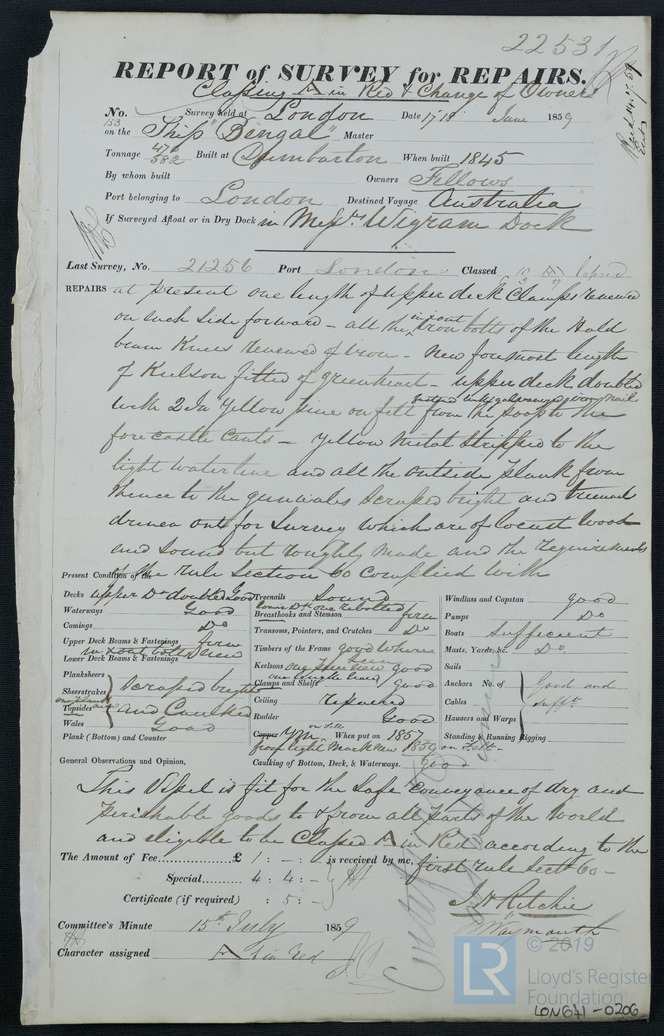 22531
REPORT of SURVEY for REPAIRS.
Classing A in Red & Change of Owners
No. 153 Survey held at London Date 17, 18 June 1859
on the Ship "Bengal" Master
Tonnage 582 Built at Dumbarton When built 1845
By whom built Owners Fellows
Port belonging to London Destined Voyage Australia
If Surveyed Afloat or in Dry Dock in Messrs Wigram Dock
Last Survey, No. 21256 Port London Classed
REPAIRS at present one length of upper deck Clamps renewed
on each side forward – all the in & out iron bolts of the Hold
beam Knees renewed of iron – New foremost length
of Keelson fitted of greenheart – upper deck doubled
with 2 In Yellow pine on felt fastened with galvanized iron nails from the Poop to the
forecastle Cants – Yellow Metal stripped to the
light water line and all the outside plank from
thence to the gunwales scraped bright and treenails
driven out for survey which are of locust wood
and sound but roughly made and the requirements
of the rule Section 60 complied with
Present Condition of the
Decks upper Do doubled Good
Waterways Good
Comings Do
Upper Deck Beams & Fastenings firm
in & out bolts new
Lower Deck Beams & Fastenings
Planksheers
Sheerstrakes
Topsides
Wales
scraped bright
and Caulked
Good
Plank (Bottom) and Counter
Treenails Sound
Breasthooks and Stemson firm
Transoms, Pointers, and Crutches Do
Timbers of the Frame good where seen
Keelsons one length new good
Clamps and Shelfs good
Ceiling repaired
Rudder Good
Copper YM on felt When put on 1857
from light Mark new 1859 on Felt –
Caulking of Bottom, Deck, & Waterways. good
Windlass and Capstan good
Pumps Do
Boats sufficient
Masts, Yards, &c. Do
Sails
Anchors No. of
Cables
Hausers and Warps
Good and
sufft
Standing & Running Rigging
General Observations and Opinion,
This Vessel is fit for the safe conveyance of dry and
perishable goods to & from all parts of the World
and eligible to be Classed A in Red according to the
first rule Sectn 60 –
The Amount of Fee £ 1 : – : – is received by me,
Special 4 : 4 : –
Certificate (if required) : 5 : –
J H Ritchie
Waymouth
Committee's Minute 15th July 1859
Character assigned A in Red
© 2019
LR
Lloyd's Register
Foundation
LON641-0206